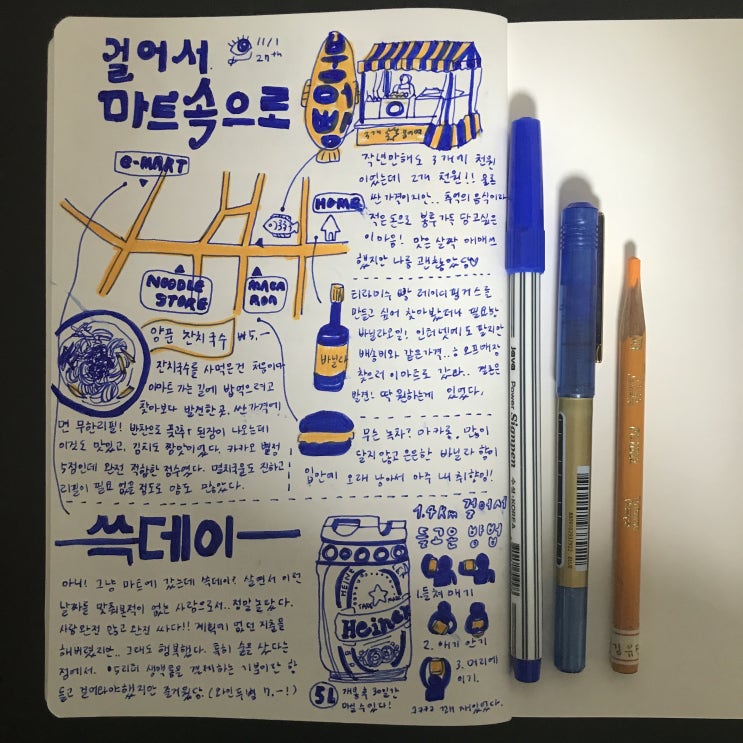 걸어서
11/1
27th
마트속으로
붕어빵
3개
작년만해도 3개에 천원
이었는데 2개 천원!! 물론
싼 가격이지만.. 추억의 음식이라
적은돈으로 봉투 가득 담고싶은
이 마음! 맛은 살짝 애매
했지만 나름 괜찮았당
E-MART
HOME
NOODLE
STORE
MACA
RON
양푼 잔치국수 ₩5.-
잔치국수를 사먹은건 처음이다
이마트 가는 길에 밥먹으려고
찾아보다 발견한 곳. 싼가격에
면 무한리필! 반찬으로 풋고추+된장이 나오는데
이것도 맛있고, 김치도 짱맛있었다. 카카오 별점
5점인데 완전 적합한 점수였다. 멸치국물도 진하고
리필이 필요 없을 정도로 양도 많았다.
바닐라
티라미수 빵 레이디핑거스를
만들고 싶어 찾아봤더니 필요한
바닐라오일! 인터넷에도 팔지만
배송비와 같은가격.. 오프매장
찾으러 이마트로 갔다. 결론은
발견! 딱 원하는게 있었다.
무슨 녹차? 마카롱. 많이
달지 않고 은은한 바닐라 향이
입안에 오래 남아서 아주 내 취향임!!
쓱데이
아니! 그냥 마트에 갔는데 쓱데이? 살면서 이런
날짜를 맞춰본적이 없는 사람으로서.. 정말 놀랐다.
사람완전 많고 완전 싸다!! 계획에 없던 지출을
해버렸지만.. 그래도 행복했다. 특히 술을 샀다는
점에서. 5L 생맥주를
들고 걸어와야했지만 즐거웠당. (와인두병 7.-!)
Heineken
5L
개봉 후 30일간
마실수있다!
1.4km 걸어서
들고온 방법
1. 들쳐 매기
2. 애기 안기
3. 머리에
이기.
ㅋㅋㅋㅋ 꽤 재밌었다.
Java Power Signpen
수성 KOREA